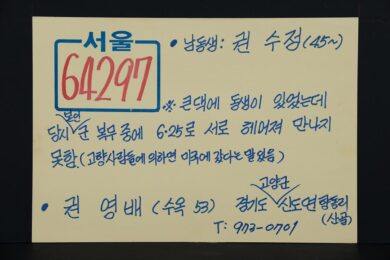 서울
64297
• 남동생: 권 수정 (45~)
※ 큰댁에 동생이 있었는데
본인
당시 군 복무 중에 6·25로 서로 헤어져 만나지
못함 (고향사람들에 의하면 미국에 갔다는 말 있음)
고양군
• 권 영배 (수옥 53) 경기도 신도면 향동리
(산골)
T: 973-0701